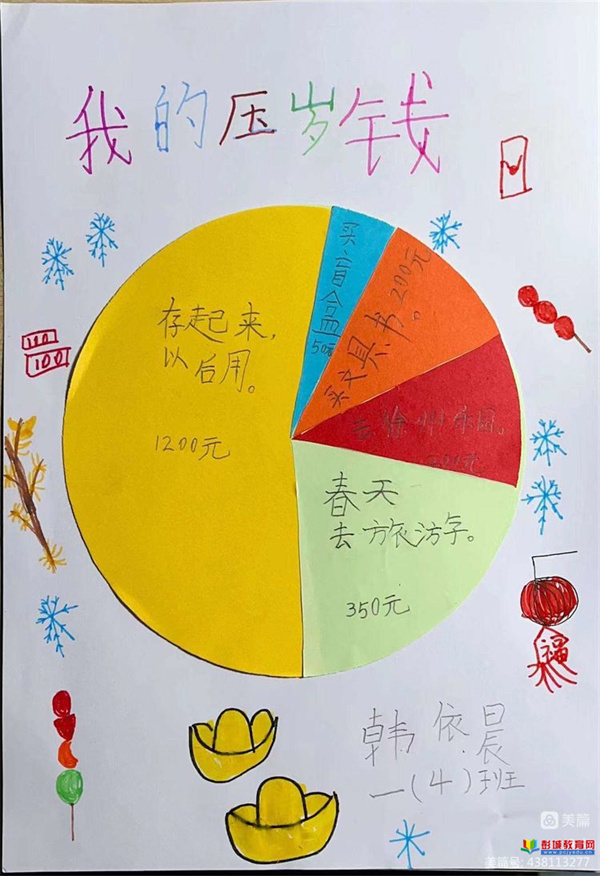 我的压岁钱
买盲盒
50元
买文具书。200元
去徐州乐园。
200元
存起来，
以后用。
1200元
春天
去旅游学。
350元
100
福
韩依晨
一(4)班
美篇
彭城教育网
美篇号:438113277